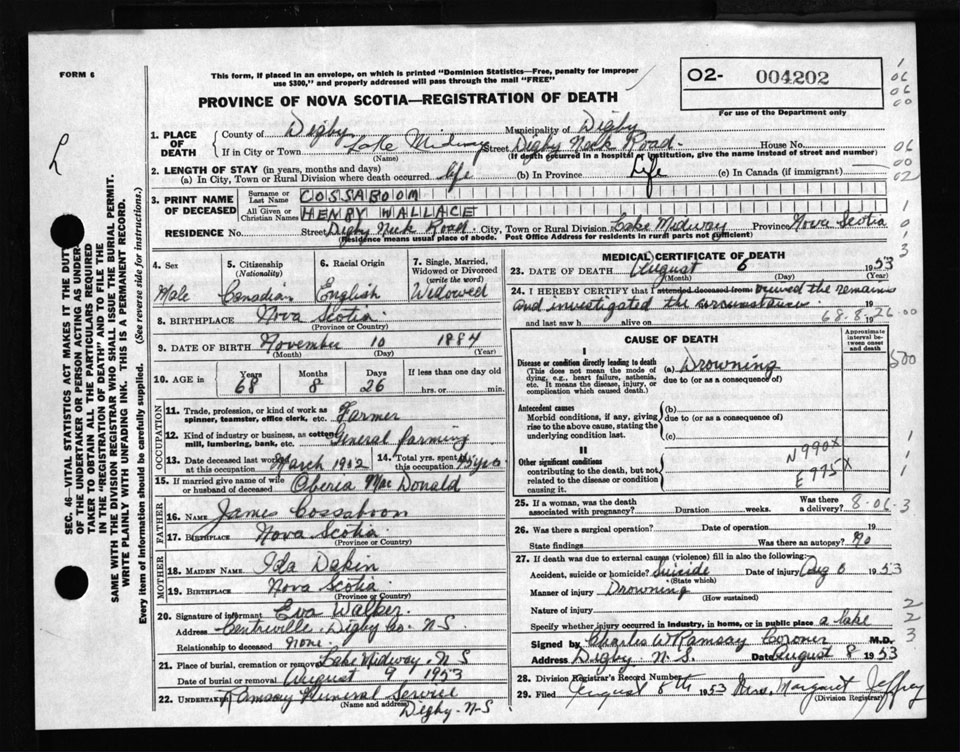 FORM 6
This form, if placed in an envelope, on which is printed "Dominion Statistics—Free, penalty for improper
use $300," and properly addressed will pass through the mail "FREE"
O2- 004202
For use of the Department only
PROVINCE OF NOVA SCOTIA—REGISTRATION OF DEATH
1. PLACE OF DEATH
County of Digby Municipality of Digby
If in City or Town Lake Midway Street Digby Neck Road House No.
(Name) (If death occurred in a hospital or institution, give the name instead of street and number)
2. LENGTH OF STAY (in years, months and days)
(a) In City, Town or Rural Division where death occurred life (b) In Province Life (c) In Canada (if immigrant)
3. PRINT NAME OF DECEASED
Surname or Last Name COSSABOOM
All Given or Christian Names HENRY WALLACE
RESIDENCE No. Street Digby Neck Road City, Town or Rural Division Lake Midway Province Nova Scotia
(Residence means usual place of abode. Post Office Address for residents in rural parts not sufficient)
4. Sex Male
5. Citizenship (Nationality) Canadian
6. Racial Origin English
7. Single, Married, Widowed or Divorced (write the word) Widowed
8. BIRTHPLACE Nova Scotia
(Province or Country)
9. DATE OF BIRTH November 10 1884
(Month) (Day) (Year)
10. AGE in Years 68 Months 8 Days 26 If less than one day old hrs. or min.
OCCUPATION
11. Trade, profession, or kind of work as spinner, teamster, office clerk, etc. Farmer
12. Kind of industry or business, as cotton mill, lumbering, bank, etc. General farming
13. Date deceased last worked at this occupation March 1952
14. Total yrs. spent in this occupation 45 yrs
15. If married give name of wife or husband of deceased Oberia Mac Donald
FATHER
16. NAME James Cossaboom
17. BIRTHPLACE Nova Scotia
(Province or Country)
MOTHER
18. MAIDEN NAME Ida Dakin
19. BIRTHPLACE Nova Scotia
(Province or Country)
20. Signature of informant Eva Walker
Address Centreville, Digby Co. N-S
Relationship to deceased none
21. Place of burial, cremation or removal Lake Midway, N S
Date of burial or removal August 9 1953
22. UNDERTAKER Ramsay Funeral Service
(Name and address) Digby-N-S
MEDICAL CERTIFICATE OF DEATH
23. DATE OF DEATH August 6 1953
(Month) (Day)
24. I HEREBY CERTIFY that I attended deceased from viewed the remains
and investigated the circumstances 19
and last saw h alive on 19
68.8.26.00
CAUSE OF DEATH
Approximate interval between onset and death
I
Disease or condition directly leading to death
(This does not mean the mode of dying, e.g., heart failure, asthenia, etc. It means the disease, injury, or complication which caused death.)
(a) Drowning
due to (or as a consequence of)
Antecedent causes
Morbid conditions, if any, giving rise to the above cause, stating the underlying condition last.
(b)
due to (or as a consequence of)
(c)
II
Other significant conditions
contributing to the death, but not related to the disease or condition causing it.
N990X
E975X
500
25. If a woman, was the death associated with pregnancy? Duration weeks. Was there a delivery?
8-06-3
26. Was there a surgical operation? Date of operation 19
State findings Was there an autopsy? No
27. If death was due to external causes (violence) fill in also the following:
Accident, suicide or homicide? Suicide Date of injury Aug 6 1953
(State which)
Manner of injury Drowning
(How sustained)
Nature of injury
Specify whether injury occurred in industry, in home, or in public place a lake
Signed by Charles W Ramsay Coroner M.D.
Address Digby N. S. Date August 8 1953
28. Division Registrar's Record Number
29. Filed August 8th 1953 Mrs. Margaret Jeffrey
(Division Registrar)
SEC. 46—VITAL STATISTICS ACT MAKES IT THE DUTY
OF THE UNDERTAKER OR PERSON ACTING AS UNDERTAKER
TO OBTAIN ALL THE PARTICULARS REQUIRED
IN THE "REGISTRATION OF DEATH" AND TO FILE THE
SAME WITH THE DIVISION REGISTRAR WHO SHALL ISSUE THE BURIAL PERMIT.
WRITE PLAINLY WITH UNFADING INK. THIS IS A PERMANENT RECORD.
Every item of information should be carefully supplied. (See reverse side for instructions.)